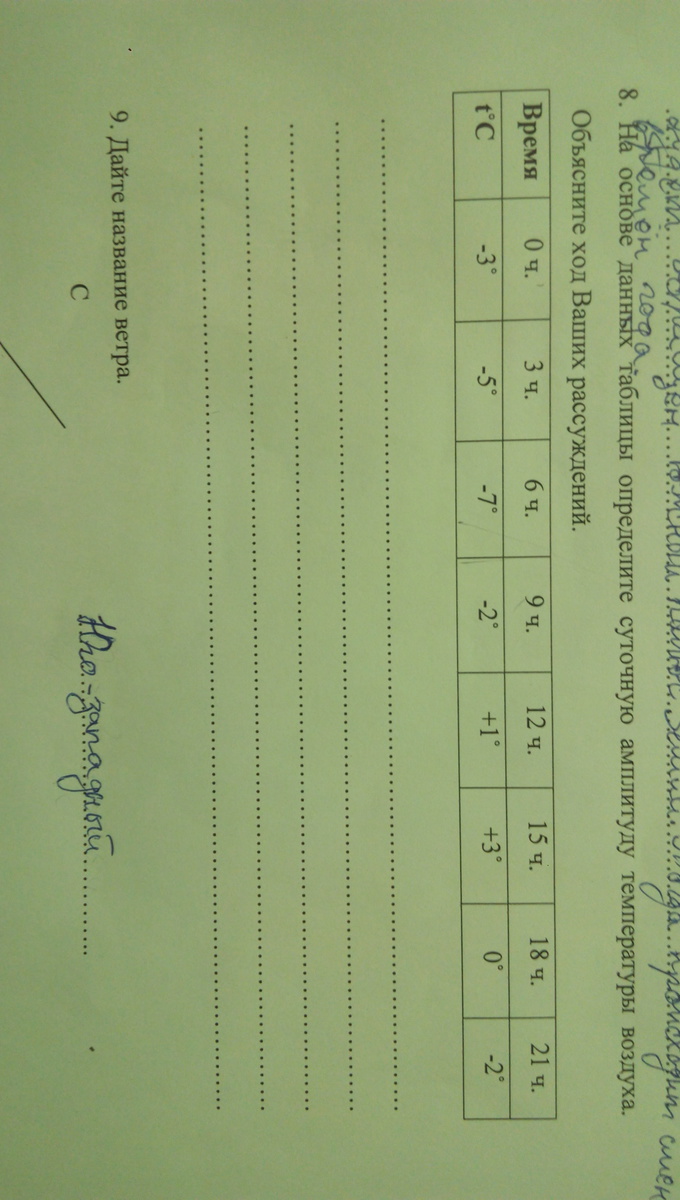 8. На основе данных таблицы определите суточную амплитуду температуры воздуха.
времён года.
Объясните ход Ваших рассуждений.
Время 0 ч. 3 ч. 6 ч. 9 ч. 12 ч. 15 ч. 18 ч. 21 ч.
t°C -3° -5° -7° -2° +1° +3° 0° -2°
9. Дайте название ветра.
С
Юго-западный